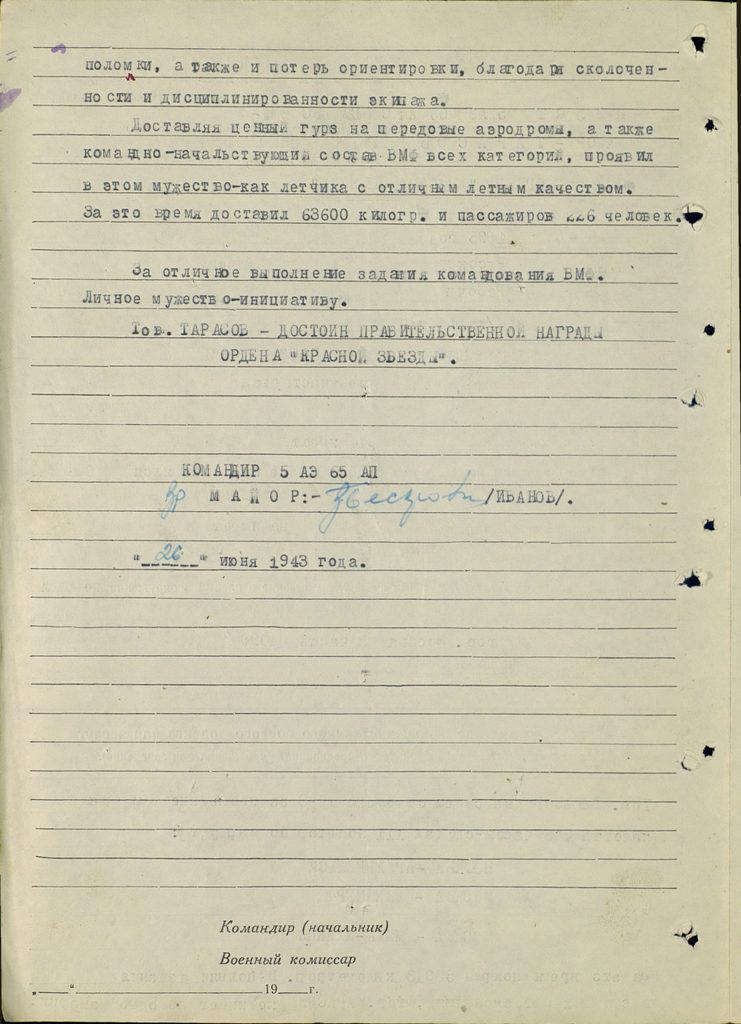 поломки, а также и потерь ориентировки, благодаря сколочен-
ности и дисциплинированности экипажа.
Доставляя ценный гурз на передовые аэродромы, а также
командно-начальствующий состав ВМФ всех категорий, проявил
в этом мужество-как летчика с отличным летным качеством.
За это время доставил 63600 килогр. и пассажиров 226 человек.
За отличное выполнение задания командования ВМФ.
Личное мужество-инициативу.
Тов. ТАРАСОВ - ДОСТОИН ПРАВИТЕЛЬСТВЕННОЙ НАГРАДЫ
ОРДЕНА "КРАСНОЙ ЗВЕЗДЫ".
КОМАНДИР 5 АЭ 65 АП
МАЙОР:- /ИВАНОВ/.
"26" июня 1943 года.
Командир (начальник)
Военный комиссар
„___“ ___ 19___г.